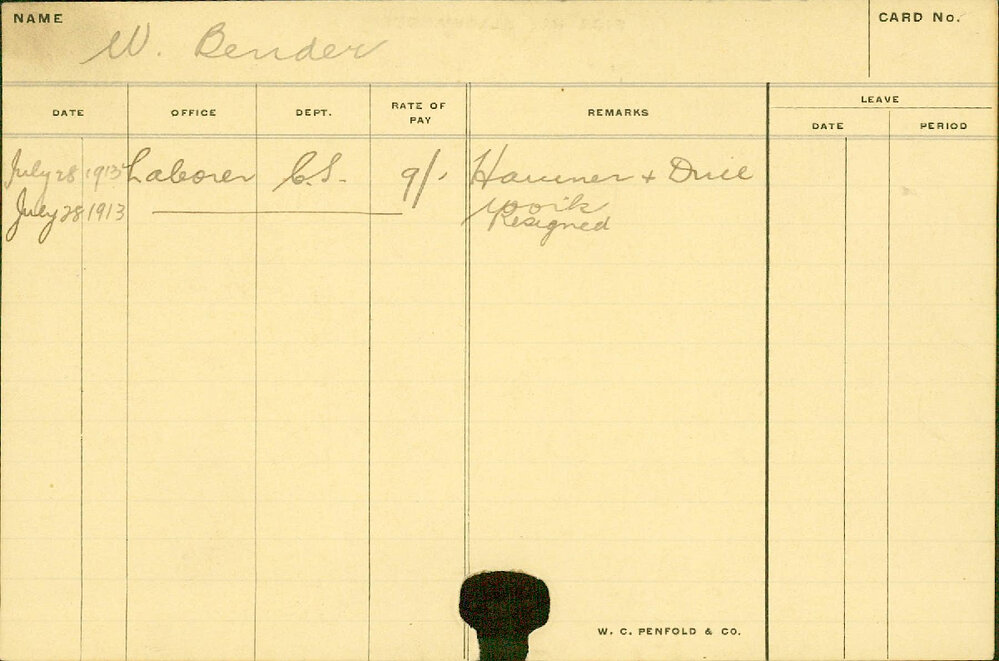 NAME
W. Bender
CARD No.
DATE OFFICE DEPT. RATE OF PAY REMARKS LEAVE
DATE PERIOD
July 28 1913 Laborer C.S. 9/. Hammer + Drill
work
July 28 1913 Resigned
W. C. PENFOLD & CO.